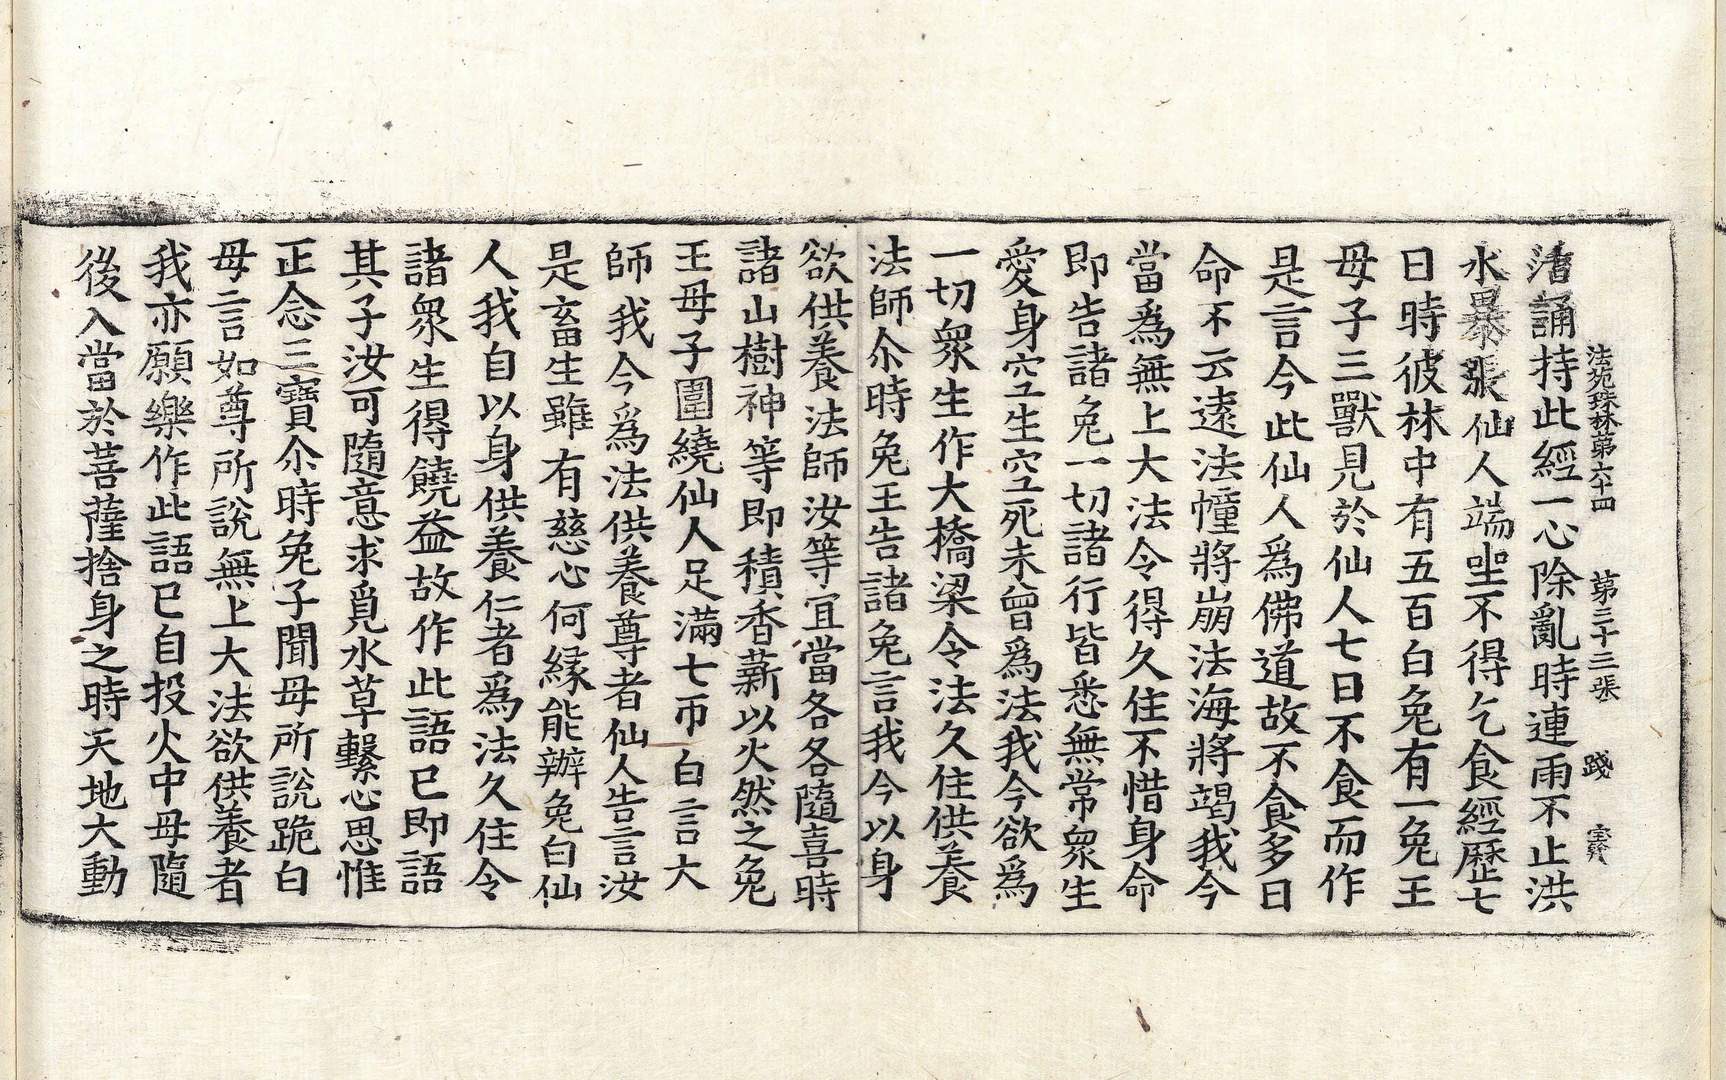 法苑珠林第六十四　第三十三張　踐
㳻誦持此經一心除亂時連雨不止洪
水暴漲仙人端坐不得乞食經歷七
日時彼林中有五百白兔有一兔王
母子三獸見於仙人七日不食而作
是言今此仙人爲佛道故不食多日
命不云遠法幢將崩法海將竭我今
當爲無上大法令得久住不惜身命
即告諸兔一切諸行皆悉無常衆生
愛身空生空死未曾爲法我今欲爲
一切衆生作大橋梁令法久住供養
法師尒時兔王告諸兔言我今以身
欲供養法師汝等宜當各各隨喜時
諸山樹神等即積香薪以火然之兔
王母子圍繞仙人足滿七帀白言大
師我今爲法供養尊者仙人告言汝
是畜生雖有慈心何緣能辦兔白仙
人我自以身供養仁者爲法久住令
諸衆生得饒益故作此語已即語
其子汝可隨意求覓水草繫心思惟
正念三寶尒時兔子聞母所說跪白
母言如尊所說無上大法欲供養者
我亦願樂作此語已自投火中母隨
後入當於菩薩捨身之時天地大動